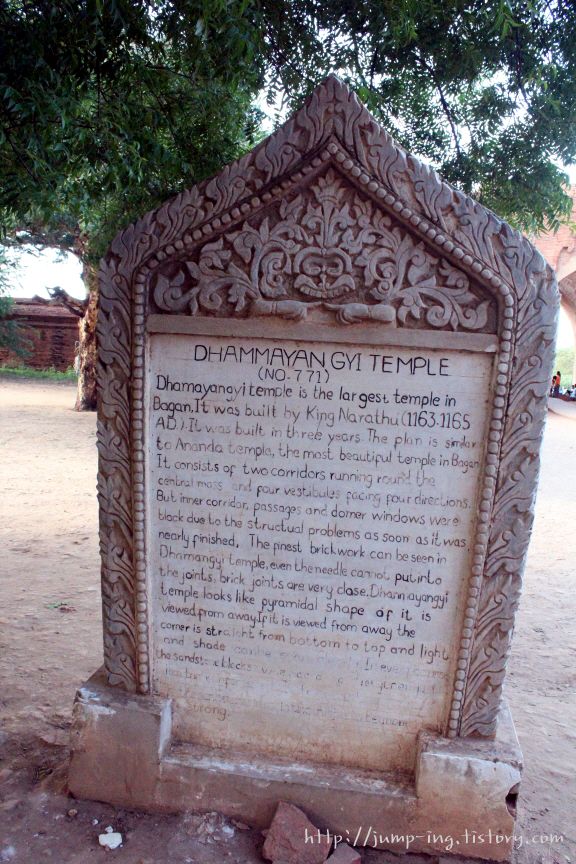 DHAMMAYAN GYI TEMPLE
(NO-771)
Dhamayangyi temple is the largest temple in
Bagan. It was built by King Narathu (1163-1165
AD). It was built in three years. The plan is similar
to Ananda temple, the most beautiful temple in Bagan
It consists of two corridors running round the
central mass and four vestibules facing four directions.
But inner corridor, passages and domer windows were
block due to the structual problems as soon as it was
nearly finished. The finest brickwork can be seen in
Dhamangyi temple, even the needle cannot put into
the joints, brick joints are very close. Dhammayangyi
temple looks like pyramidal shape of it is
viewed from away. If it is viewed from away the
corner is straight from bottom to top and light
and shade
the sandstone blocks
strong.
http://jump-ing.tistory.com